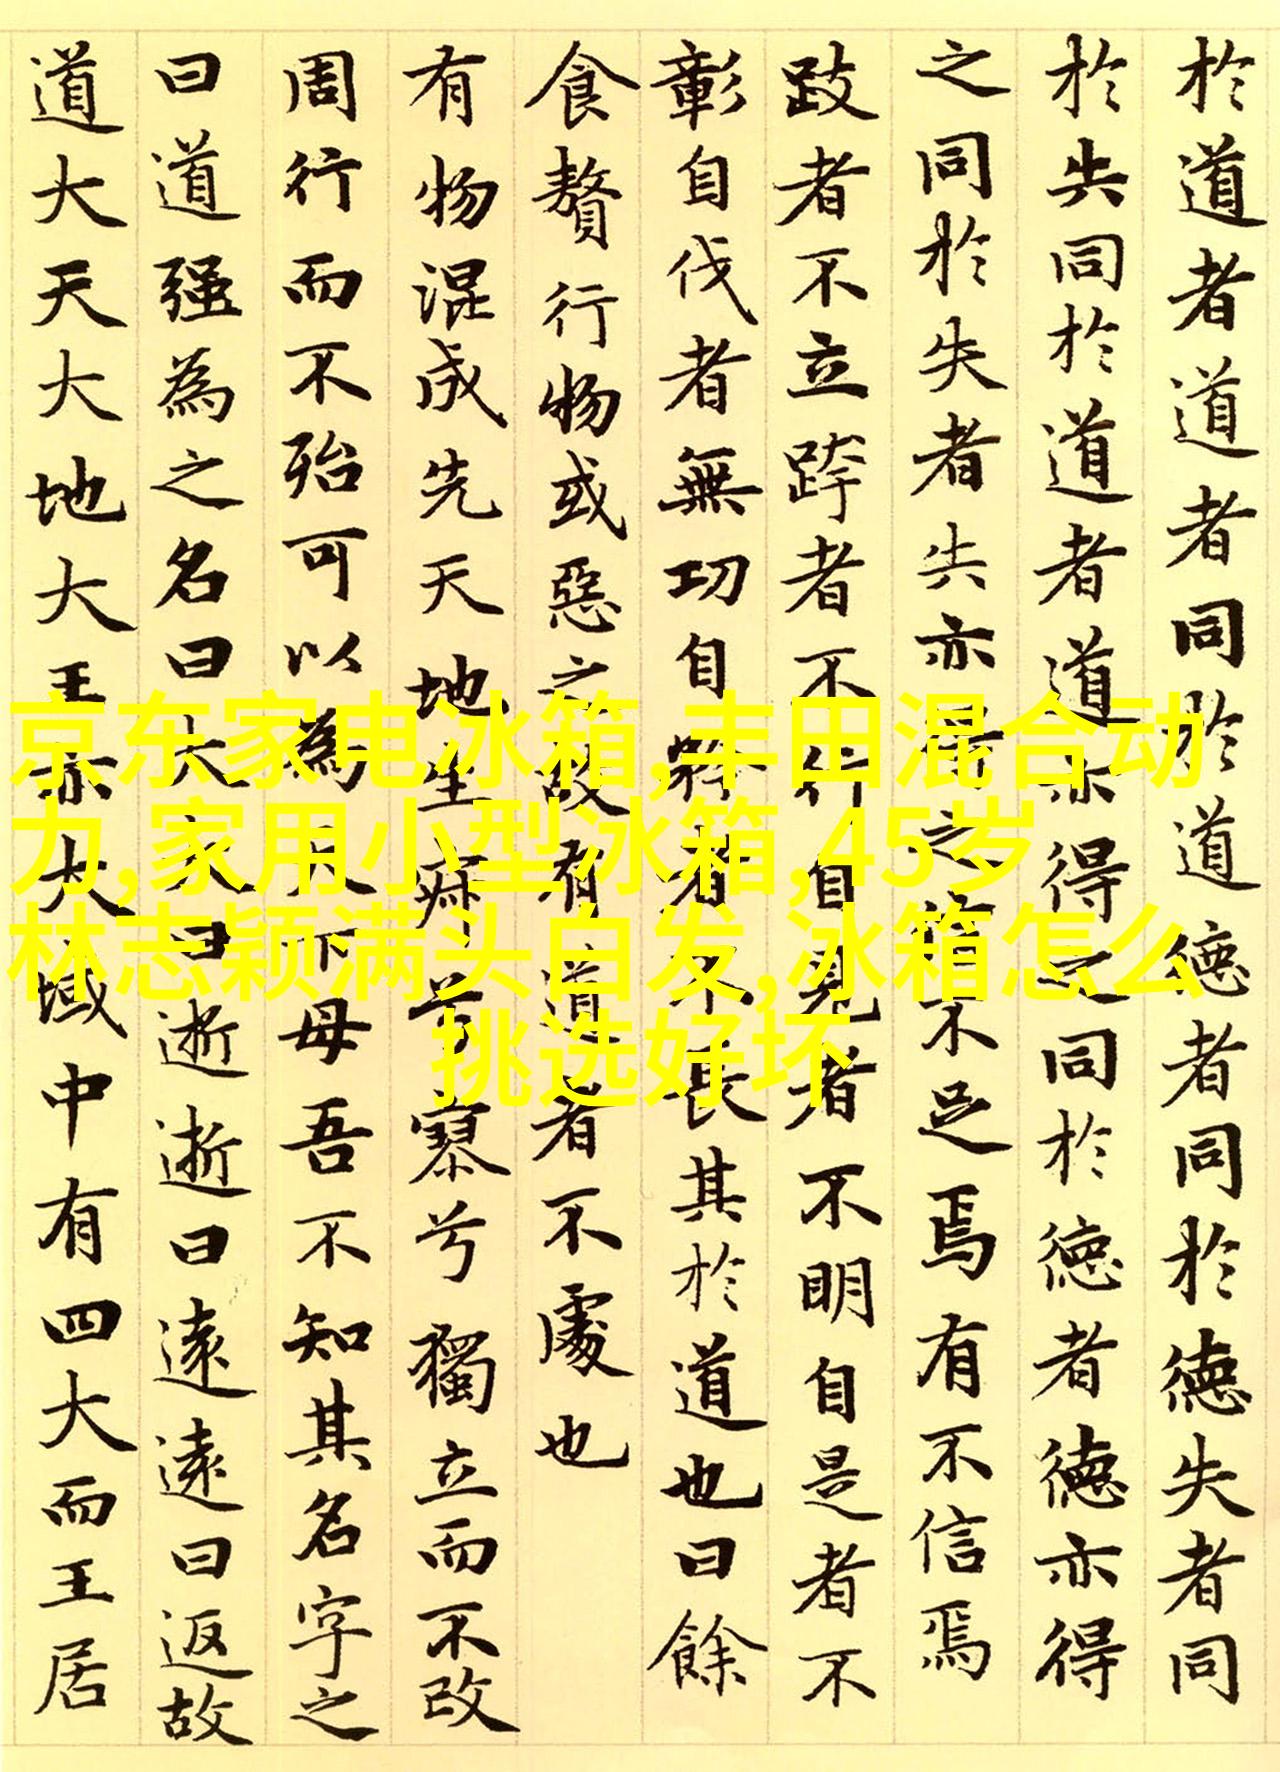 於道者道者同於道德者同於德失者同
於失同於道者道亦得之同於德者德亦得
之同於失者失亦得之信不足焉有不信焉
跂者不立跨者不行自見者不明自是者不
彰自伐者無功自矜者不長其於道也曰餘
食贅行物或惡之故有道者不處也
有物混成先天地生寂兮寥兮獨立而不改
周行而不殆可以為天下母吾不知其名字之
曰道强為之名曰大大曰逝逝曰遠遠曰返故
道大天大地大王亦大域中有四大而王居
京东家电冰箱,丰田混合动
力,家用小型冰箱,45岁
林志颖满头白发,冰箱怎么
挑选好坏